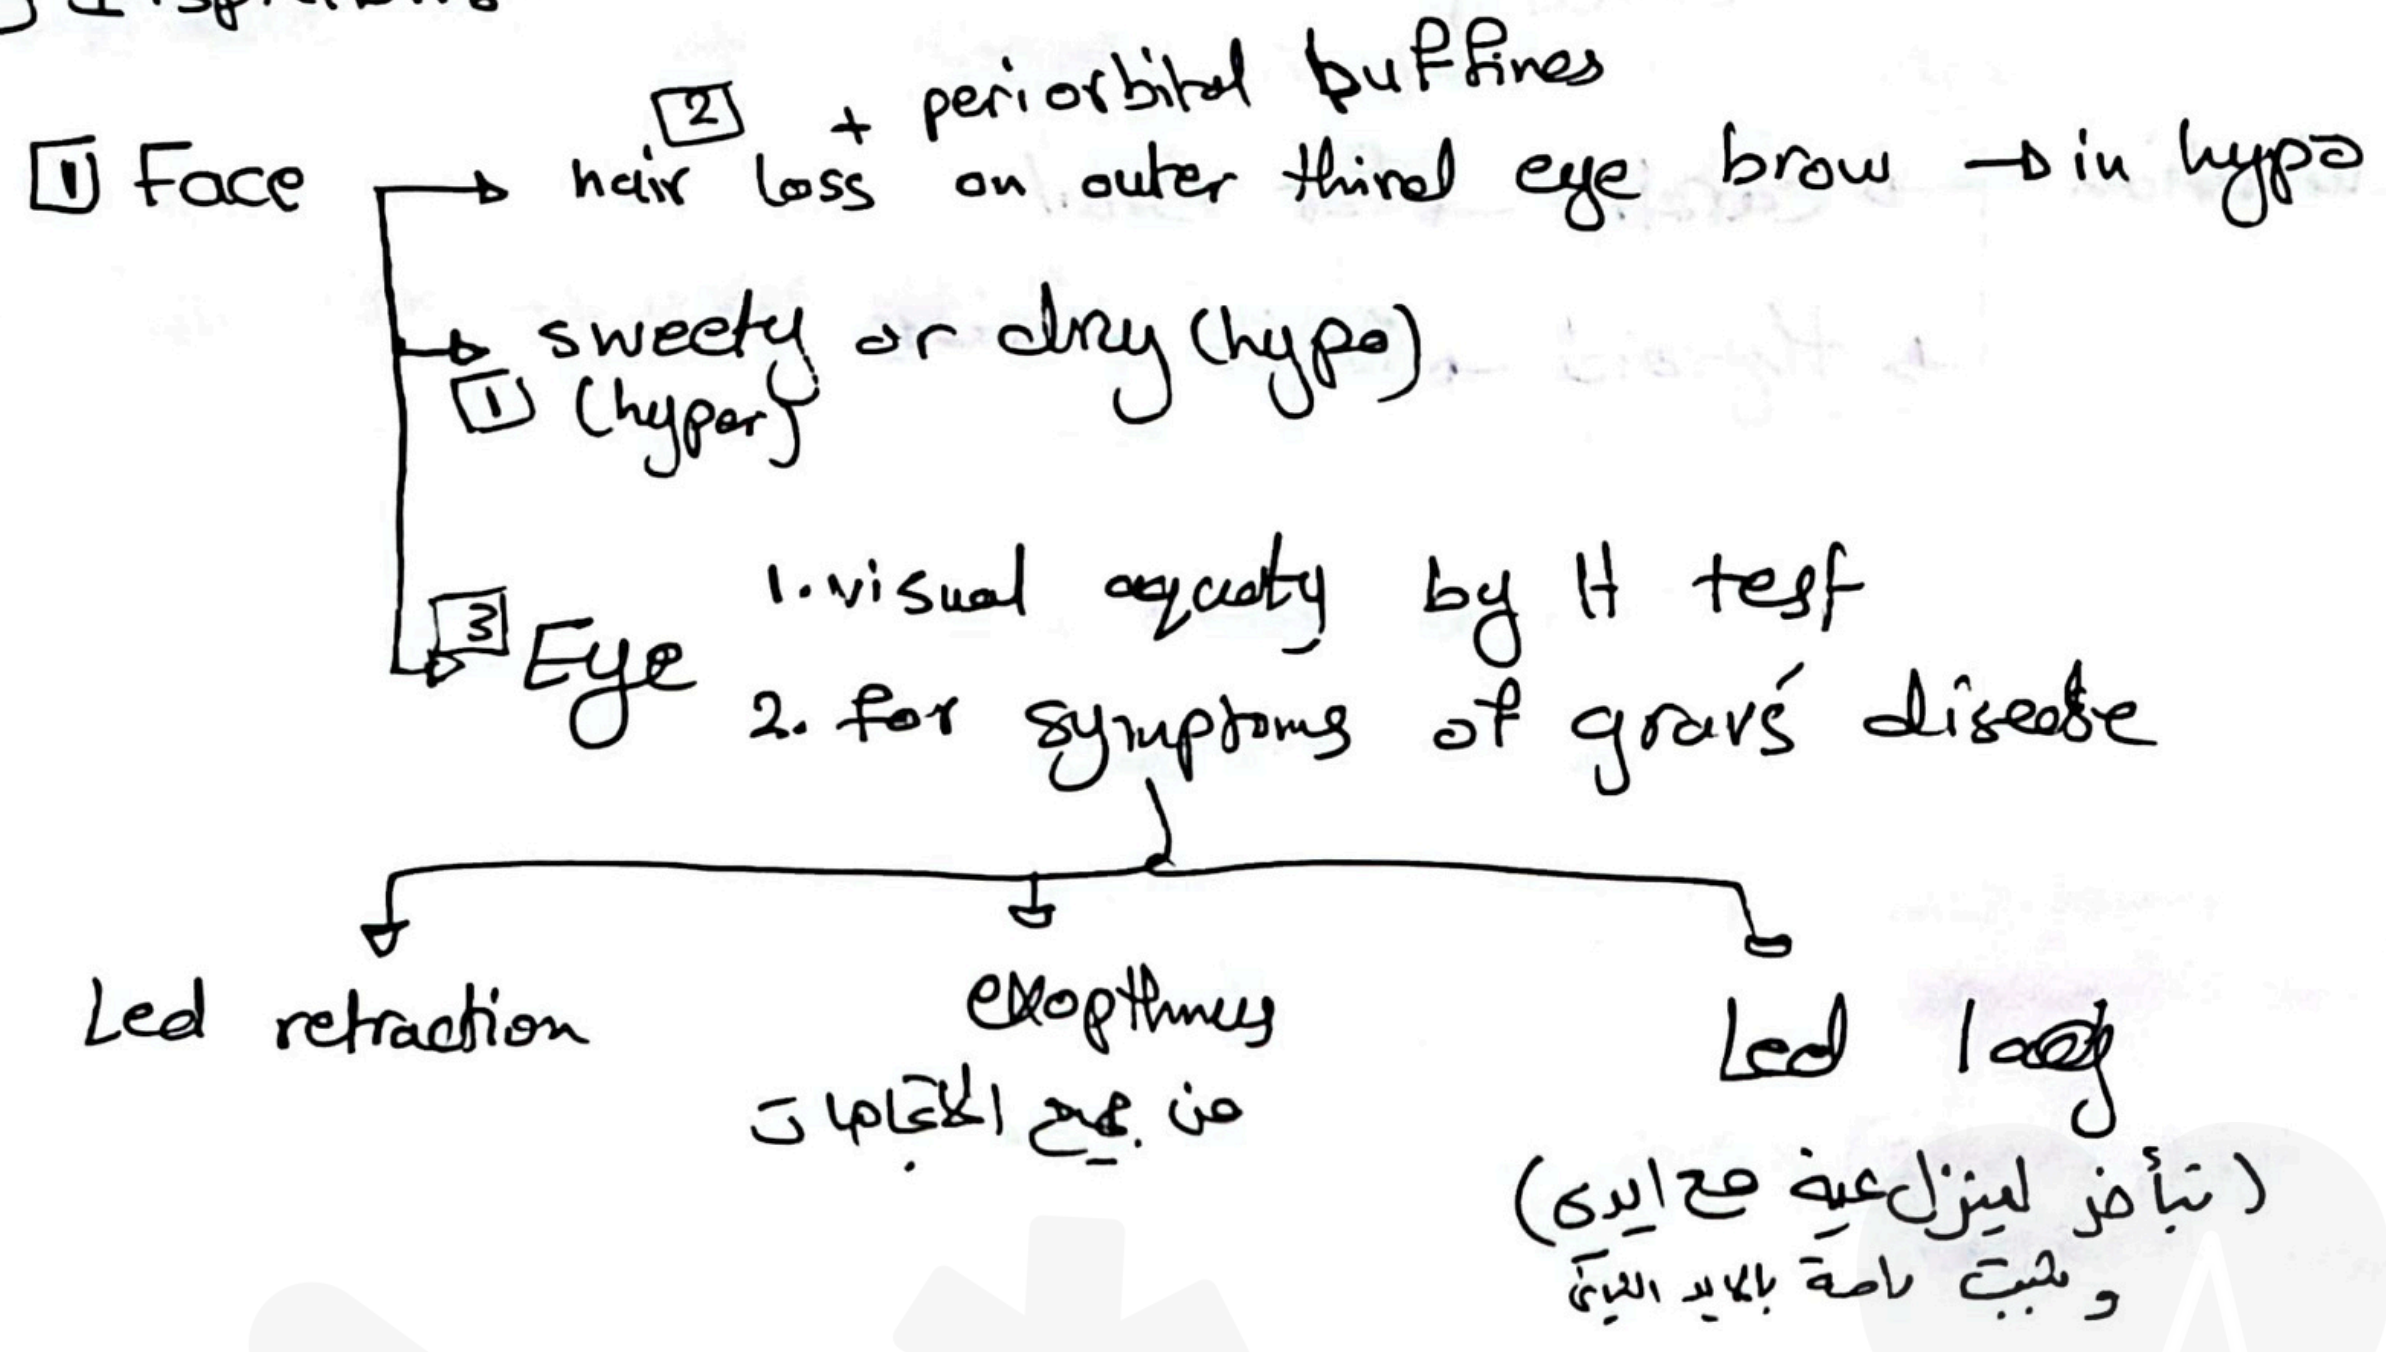 [2] + periorbital puffines
[1] Face → hair loss on outer third eye brow → in hypo
→ sweety or dry (hypo)
[1] (hyper)
[3] Eye
1. visual aquaty by H test
2. for symptoms of gravs' disease
Led retraction
exopthmus
Led lag
من جميع الاتجاهات
(تتأخر لينزل عينه مع ايدي)
و بثبت راسة بالايد الثاني